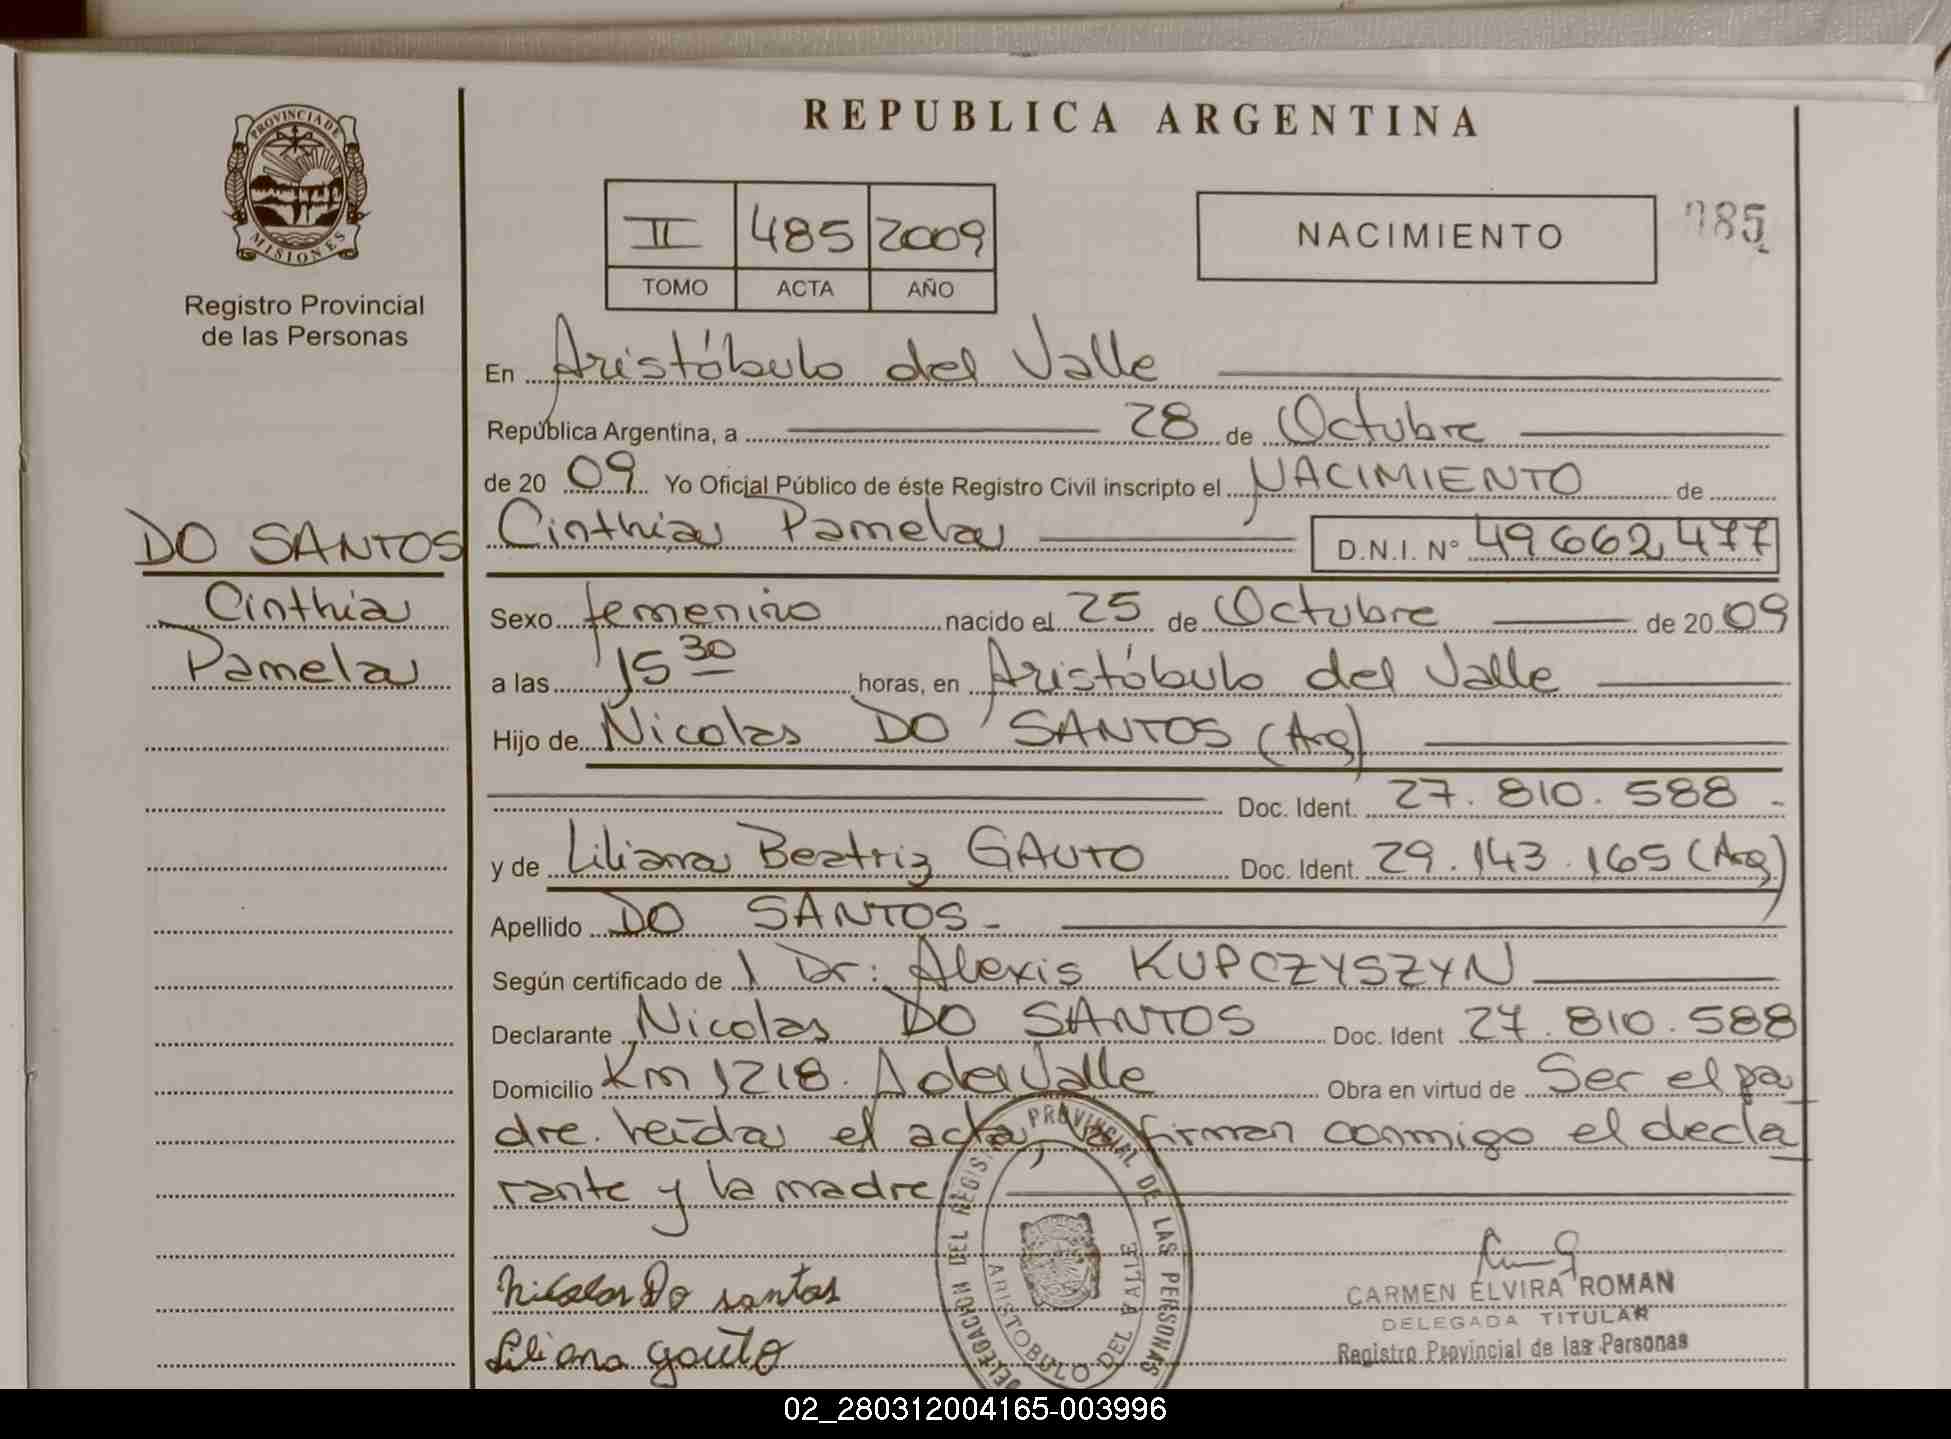 PROVINCIA DE
MISIONES
Registro Provincial
de las Personas
REPUBLICA ARGENTINA
II 485 2009
TOMO ACTA AÑO
NACIMIENTO
985
En Aristóbulo del Valle
República Argentina, a 28 de Octubre
de 20 09 Yo Oficial Público de éste Registro Civil inscripto el NACIMIENTO de
DO SANTOS
Cinthia
Pamela
Cinthia Pamela D.N.I. Nº 49662477
Sexo femenino nacido el 25 de Octubre de 20 09
a las 15 30 horas, en Aristóbulo del Valle
Hijo de Nicolas DO SANTOS (Arg)
Doc. Ident. 27.810.588.-
y de Liliana Beatriz GAUTO Doc. Ident. 29.143.165 (Arg)
Apellido DO SANTOS-
Según certificado de 1 Dr: Alexis KUPCZYSZYN
Declarante Nicolas DO SANTOS Doc. Ident 27.810.588
Domicilio Km 1218. A del Valle Obra en virtud de Ser el pa
dre. leída el acta, la firman conmigo el decla
rante y la madre
Nicolas Do santos
Liliana gauto
DELEGACION DEL REGIS. PROVINCIAL DE LAS PERSONAS
ARISTOBULO DEL VALLE
CARMEN ELVIRA ROMAN
DELEGADA TITULAR
Registro Provincial de las Personas
02_280312004165-003996